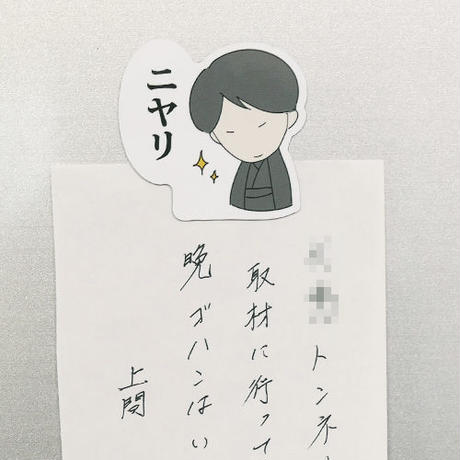 ニヤリ
トンネ
取材に行って
晩ゴハンはい
上間